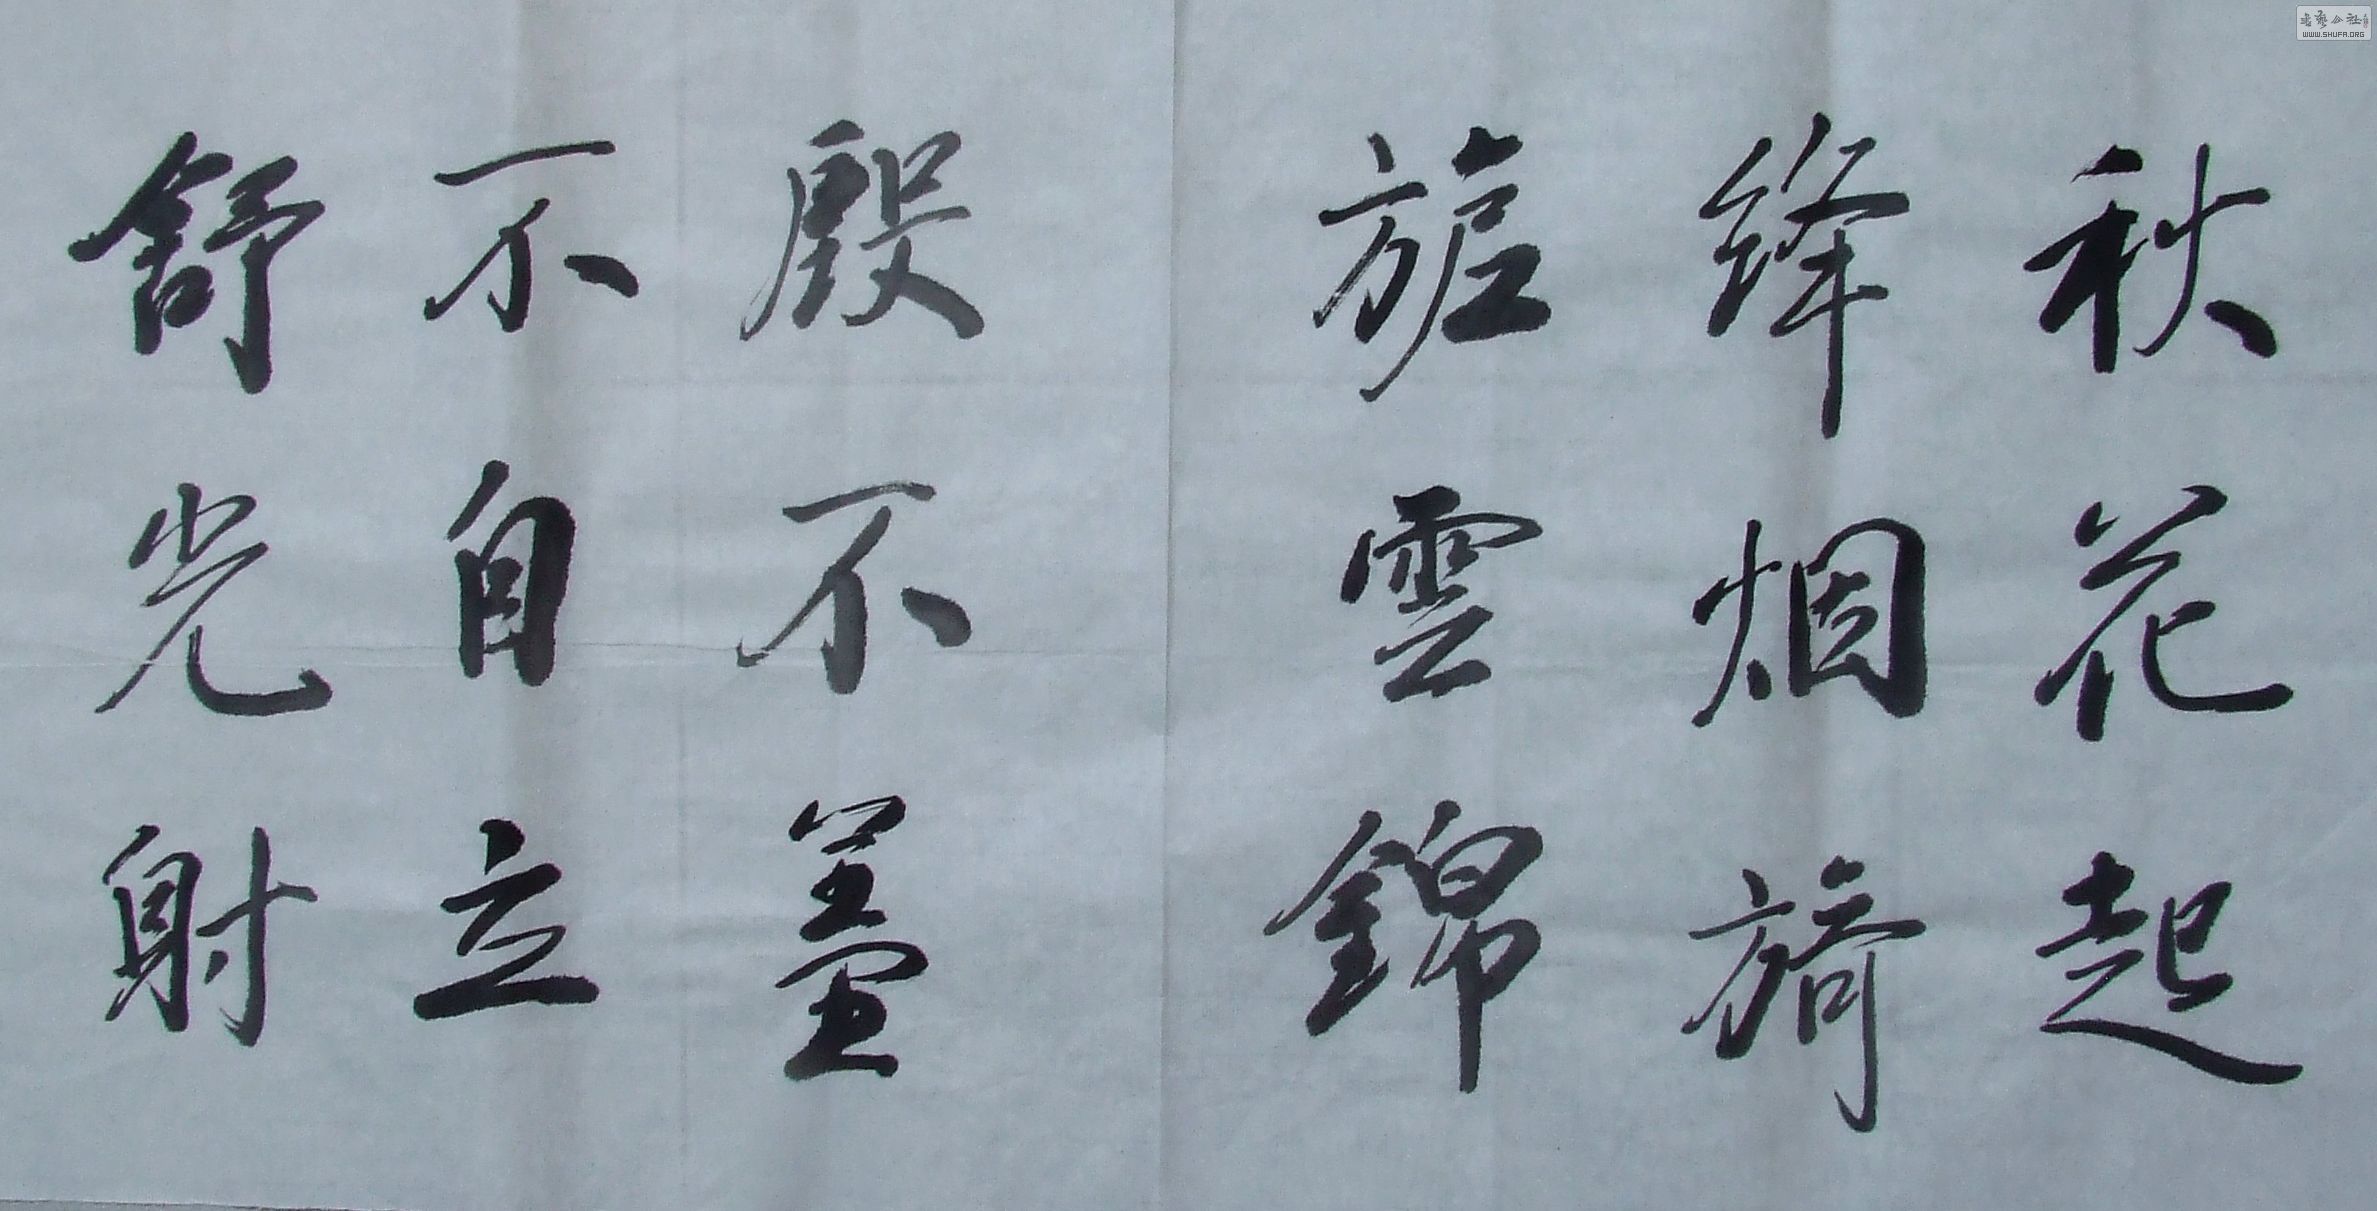 秋花起
絳烟旖
旎雲錦
殷不羞
不自立
舒光射
WWW.SHUFA.ORG